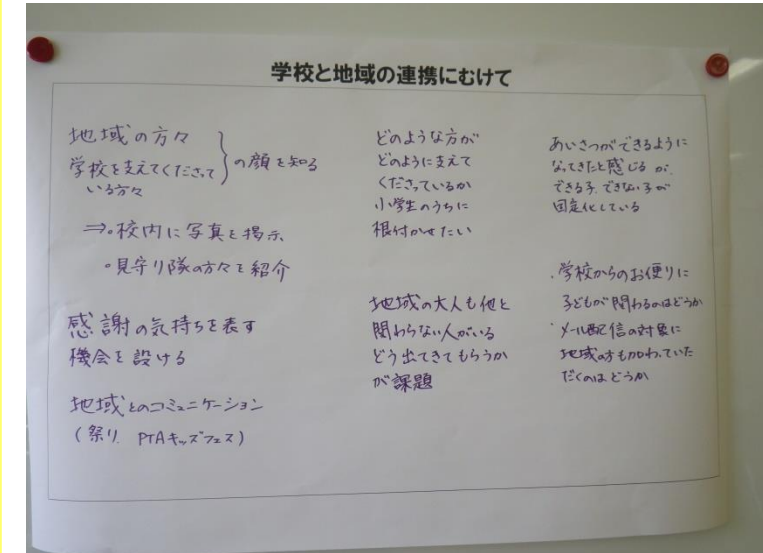 学校と地域の連携にむけて
地域の方々
学校を支えてくださって
いる方々
} の顔を知る
⇒・校内に写真を掲示
・見守り隊の方々を紹介
感謝の気持ちを表す
機会を設ける
地域とのコミュニケーション
(祭り PTAキッズフェス)
どのような方が
どのように支えて
くださっているか
小学生のうちに
根付かせたい
地域の大人も他と
関わらない人がいる
どう出てきてもらうか
が課題
あいさつができるように
なってきたと感じるが、
できる子、できない子が
固定化している
・学校からのお便りに
子どもが関わるのはどうか
・メール配信の対象に
地域の方も加わっていた
だくのはどうか